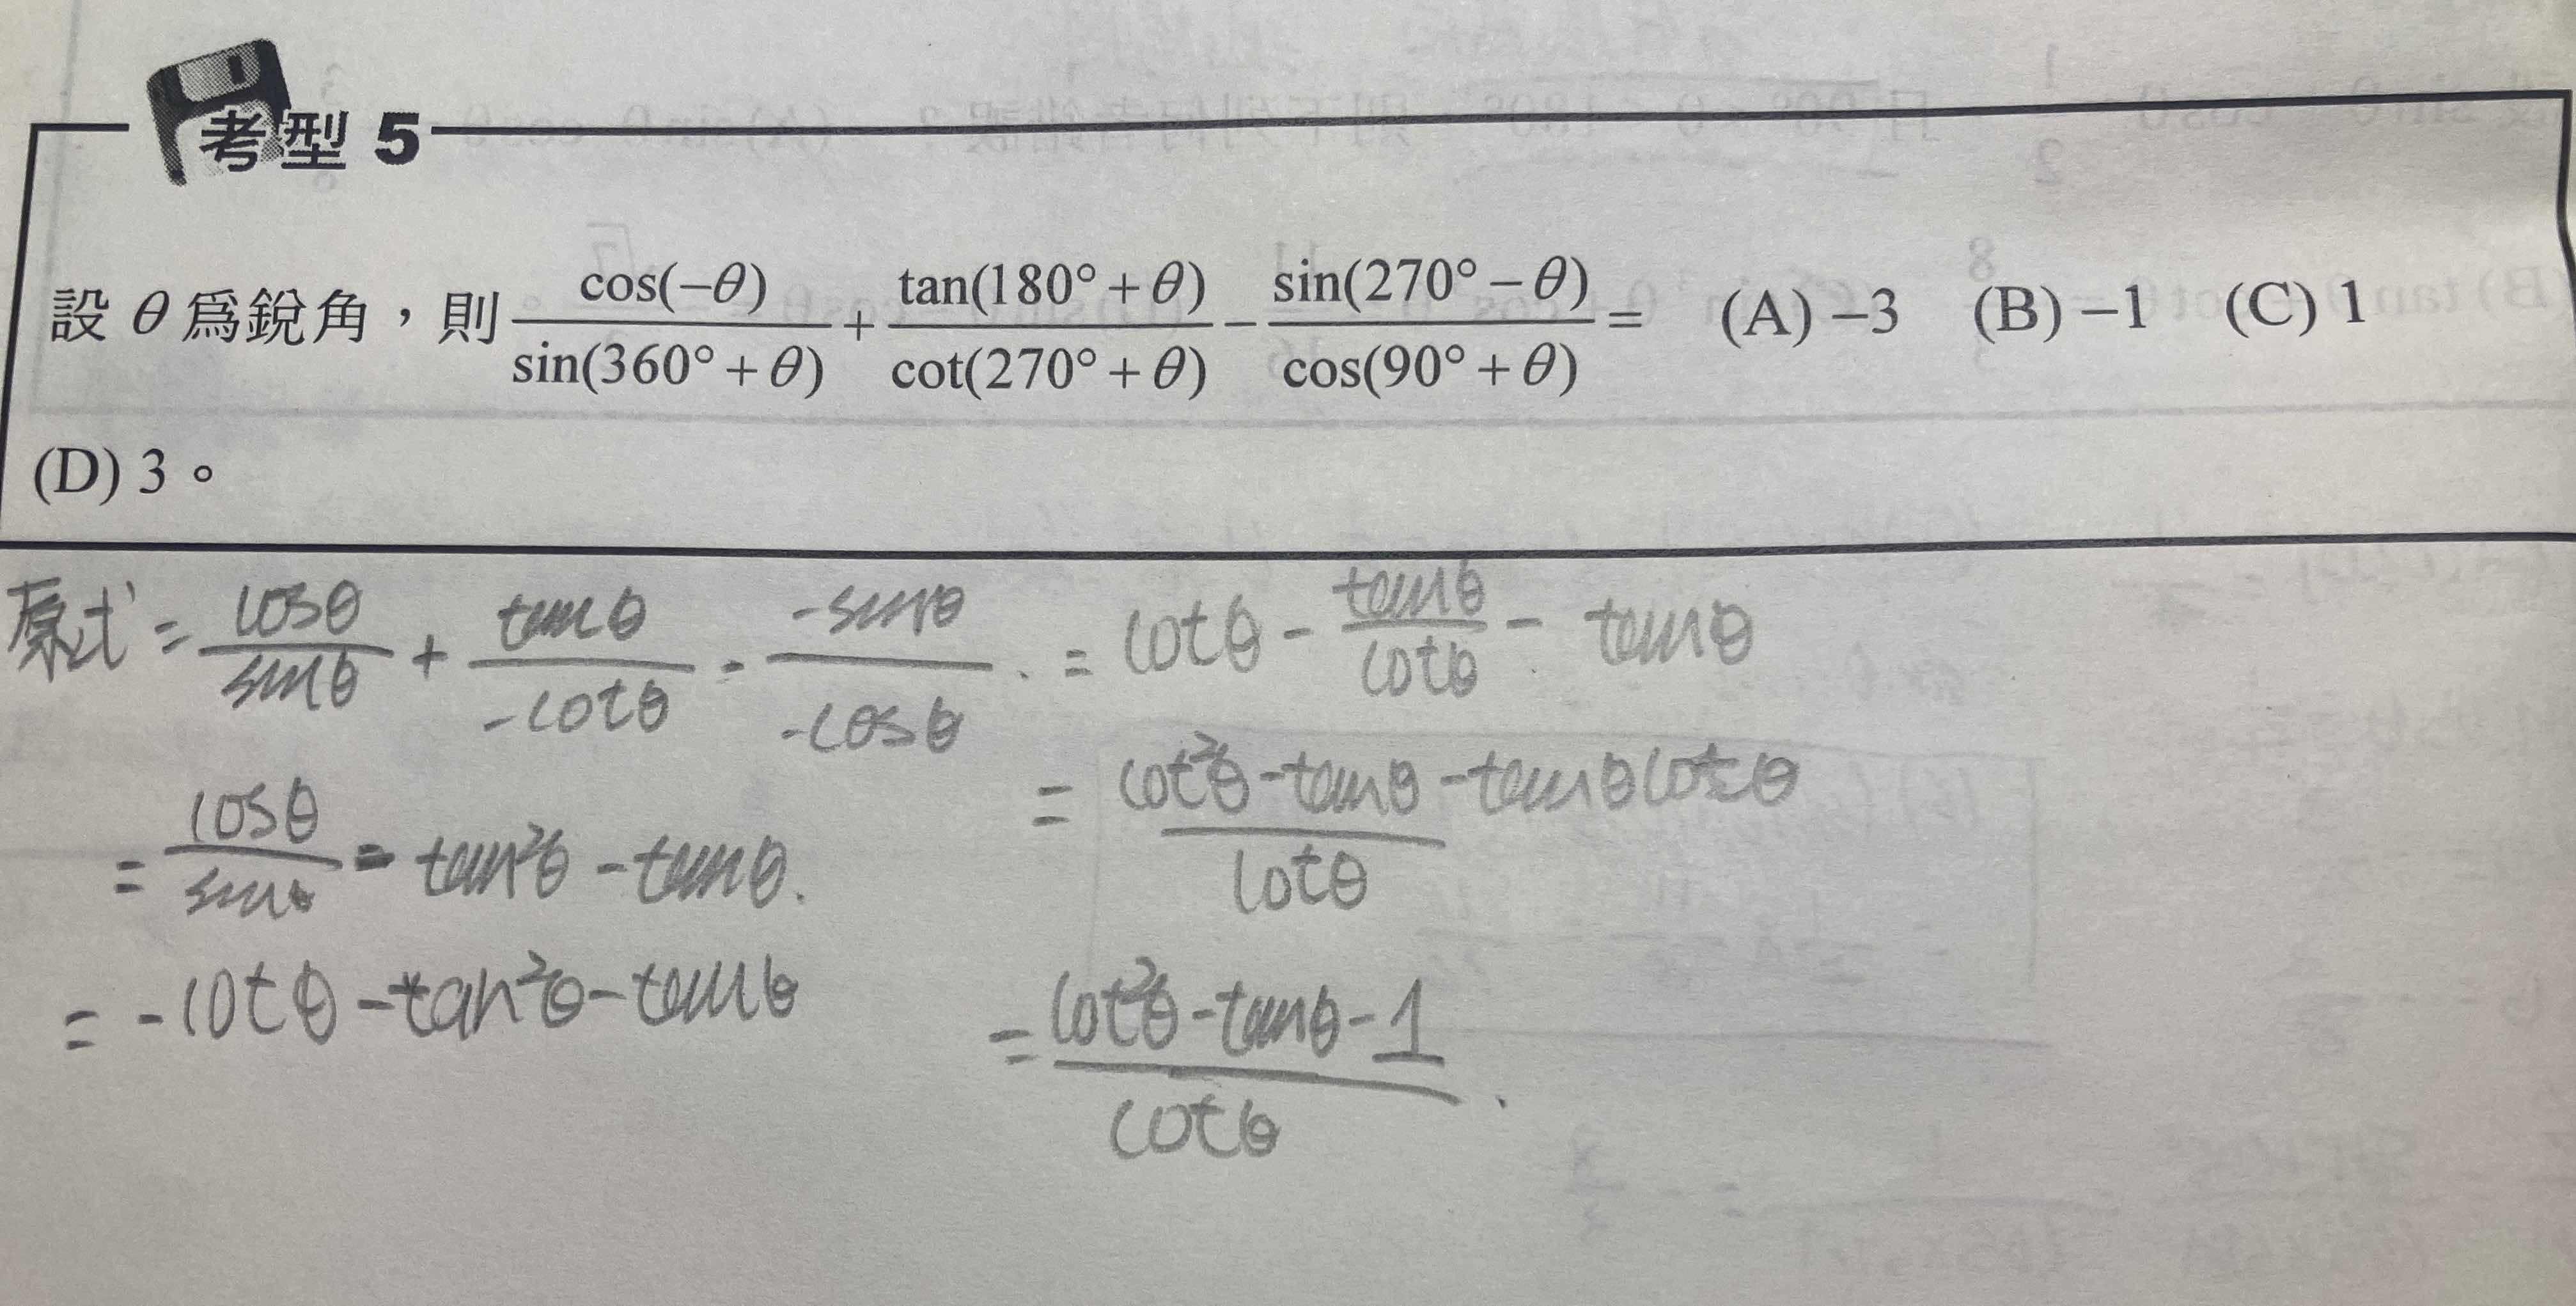 考型 5
設 θ 為銳角，則 cos(−θ)/sin(360°+θ) + tan(180°+θ)/cot(270°+θ) − sin(270°−θ)/cos(90°+θ) = (A) −3 (B) −1 (C) 1
(D) 3。
原式 = cosθ/sinθ + tanθ/-cotθ - -sinθ/-cosθ . = cotθ - tanθ/cotθ - tanθ
= cosθ/sinθ - tan²θ - tanθ.
= cot²θ - tanθ - tanθcotθ/cotθ
= -cotθ - tan²θ - tanθ
= cot²θ - tanθ - 1/cotθ .